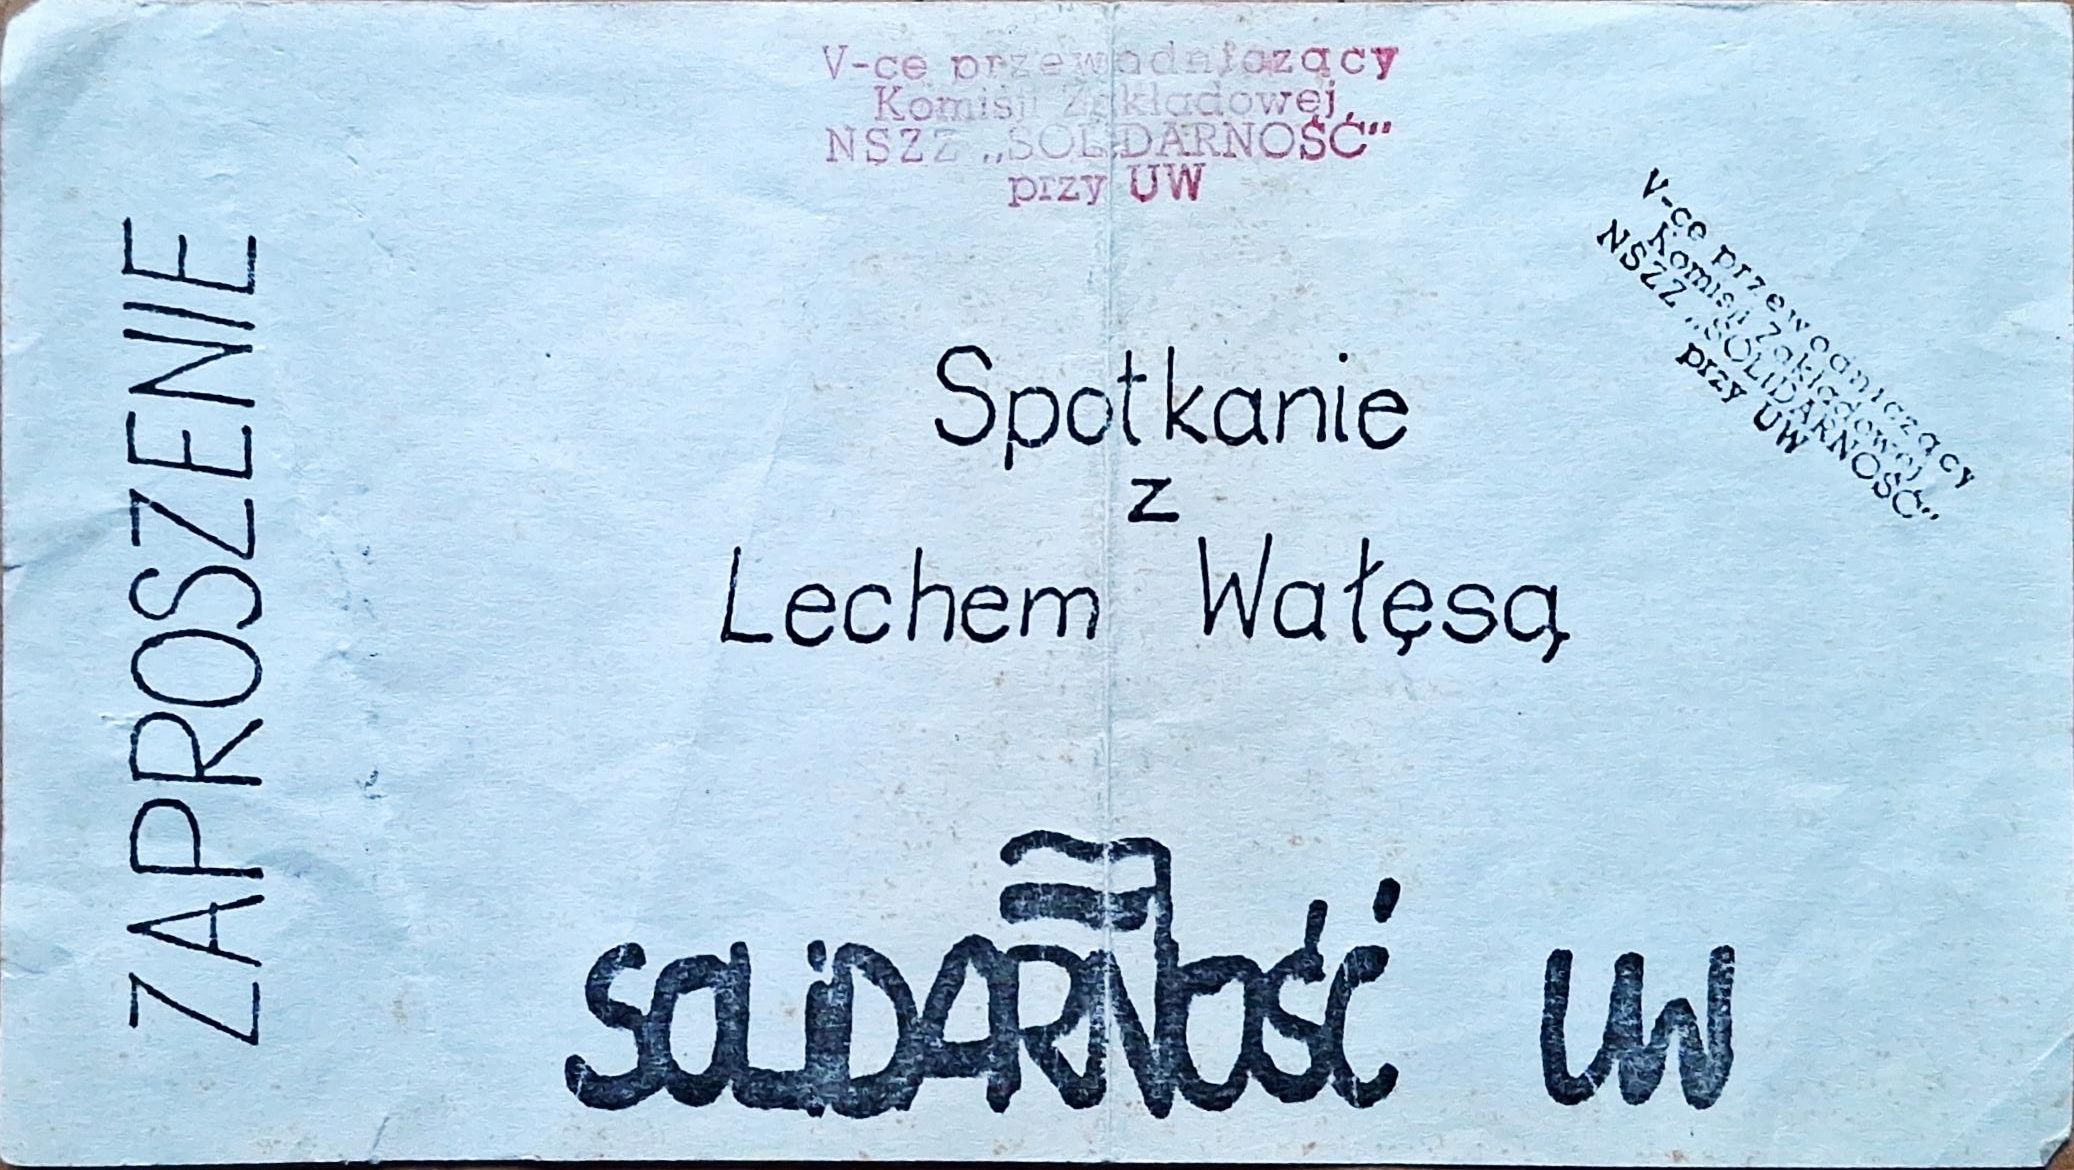 ZAPROSZENIE
V-ce przewodniczący
Komisji Zakładowej
NSZZ „SOLIDARNOŚĆ”
przy UW
V-ce przewodniczący
Komisji Zakładowej
NSZZ „SOLIDARNOŚĆ”
przy UW
Spotkanie
z
Lechem Wałęsą
SOLiDARNOŚĆ UW